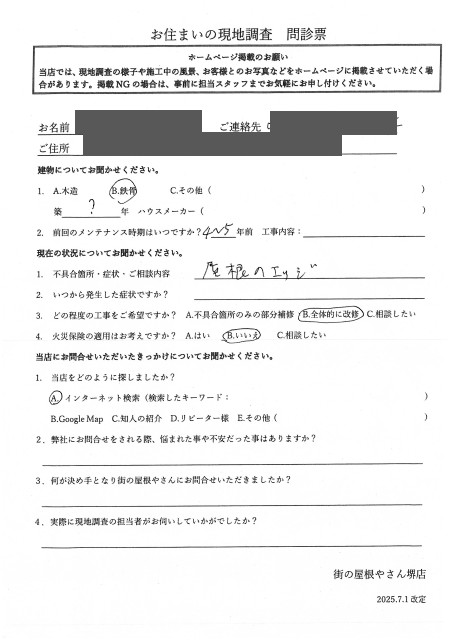 お住まいの現地調査 問診票
ホームページ掲載のお願い
当店では、現地調査の様子や施工中の風景、お客様とのお写真などをホームページに掲載させていただく場
合があります。掲載NGの場合は、事前に担当スタッフまでお気軽にお申し付けください。
お名前 ご連絡先
ご住所
建物についてお聞かせください。
1. A.木造 B.鉄骨 C.その他( )
築 ? 年 ハウスメーカー( )
2. 前回のメンテナンス時期はいつですか? 4~5 年前 工事内容:
現在の状況についてお聞かせください。
1. 不具合箇所・症状・ご相談内容 屋根のエッジ
2. いつから発生した症状ですか?
3. どの程度の工事をご希望ですか? A.不具合箇所のみの部分補修 B.全体的に改修 C.相談したい
4. 火災保険の適用はお考えですか? A.はい B.いいえ C.相談したい
当店にお問合せいただいたきっかけについてお聞かせください。
1. 当店をどのように探しましたか?
A.インターネット検索(検索したキーワード: )
B.Google Map C.知人の紹介 D.リピーター様 E.その他( )
2.弊社にお問合せをされる際、悩まれた事や不安だった事はありますか?
3.何が決め手となり街の屋根やさんにお問合せいただきましたか?
4.実際に現地調査の担当者がお伺いしていかがでしたか?
街の屋根やさん堺店
2025.7.1 改定